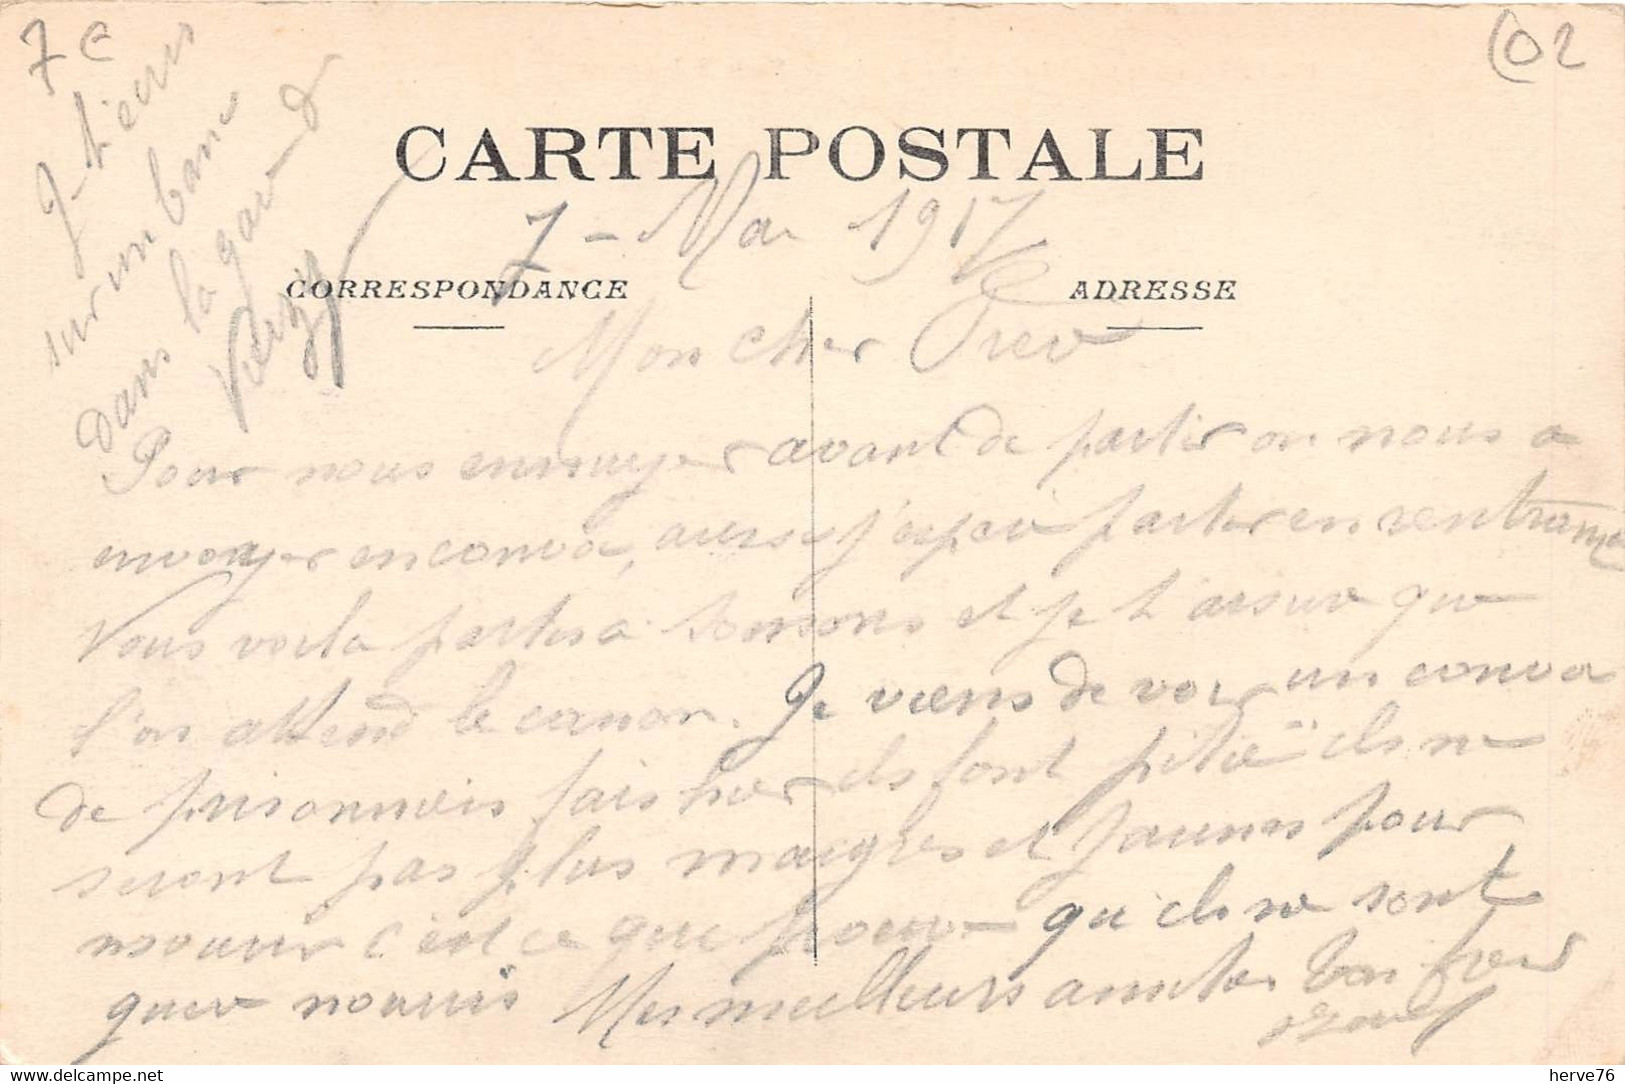 7 €
02
J'écris
sur un banc
dans la gare d
Vierzy
CARTE POSTALE
7 - Mai 1917
CORRESPONDANCE
ADRESSE
Mon cher
Pour nous ennuyer avant de partir on nous a
envoyer en convoi, aussi j'espère partir en
Nous voila partis a Soissons et je t'assure que
l'on attend le canon. Je viens de voir un convoi
de prisonniers fais hier ils font pitié ils ne
seront pas plus maigres et jaunes pour
mourir c'est ce que prouve qu'ils ne sont
guere nourris Mes meilleurs amities ton frere
www.delcampe.net
herve76